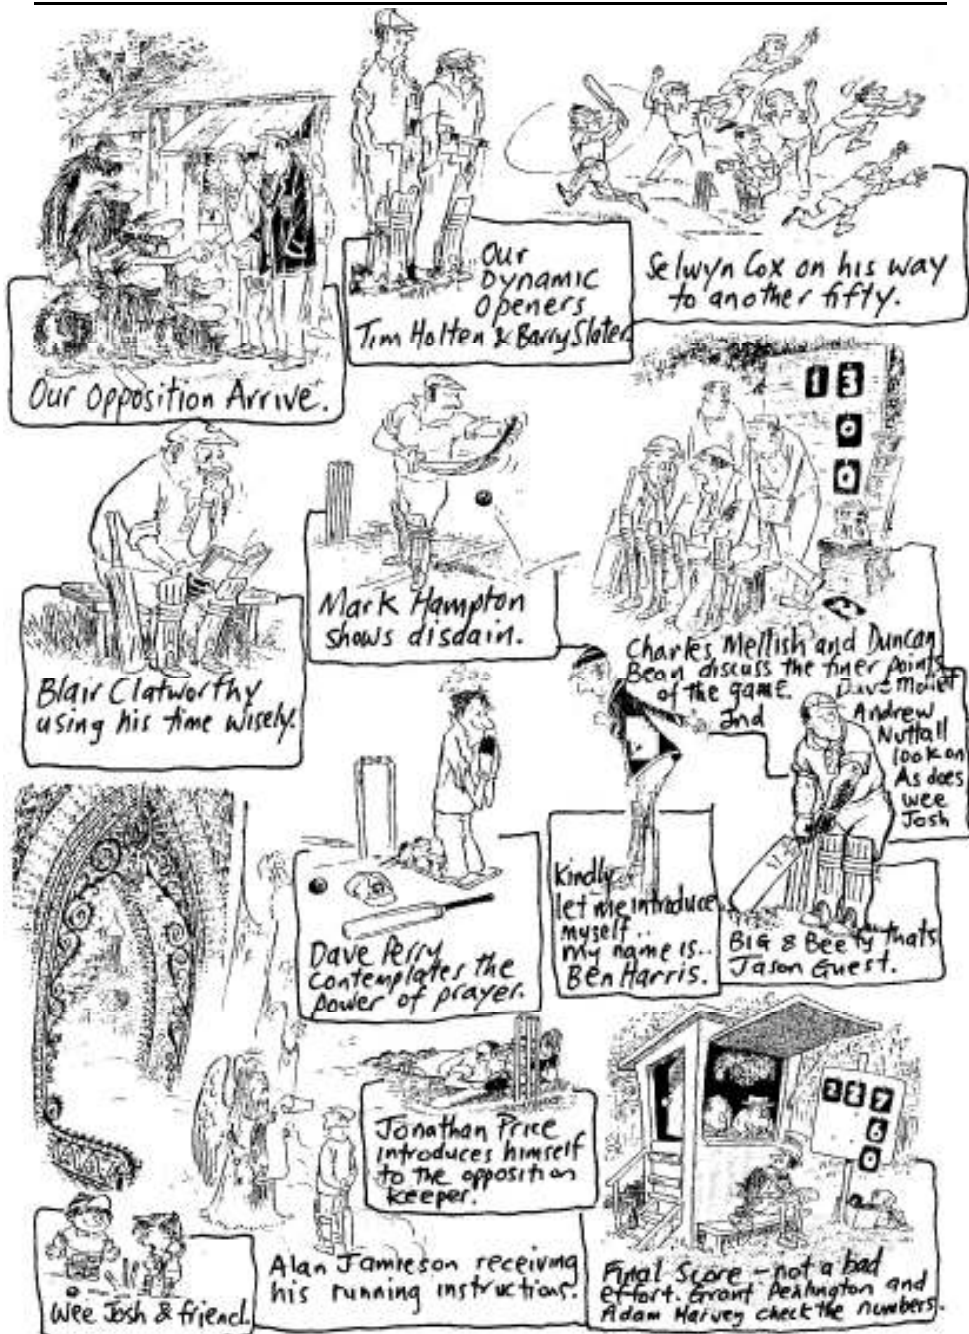 Our Opposition Arrive.
Our
Dynamic
Openers
Tim Holten & Barry Slater
Selwyn Cox on his way
to another fifty.
Blair Clatworthy
using his time wisely.
Mark Hampton
shows disdain.
13
0
0
Charles Mellish and Duncan
Bean discuss the finer points
of the game. Dave
And
Andrew
Nuttall
look on
As does
wee
Josh
Dave Perry
contemplates the
power of prayer.
Kindly..
let me introduce
myself..
my name is..
Ben Harris.
BIG & Beefy thats
Jason Guest.
Wee Josh & friend.
Alan Jamieson receiving
his running instructions.
Jonathan Price
introduces himself
to the opposition
keeper.
237
6
0
Final Score - not a bad
effort. Grant and
Adam Harvey check the numbers.